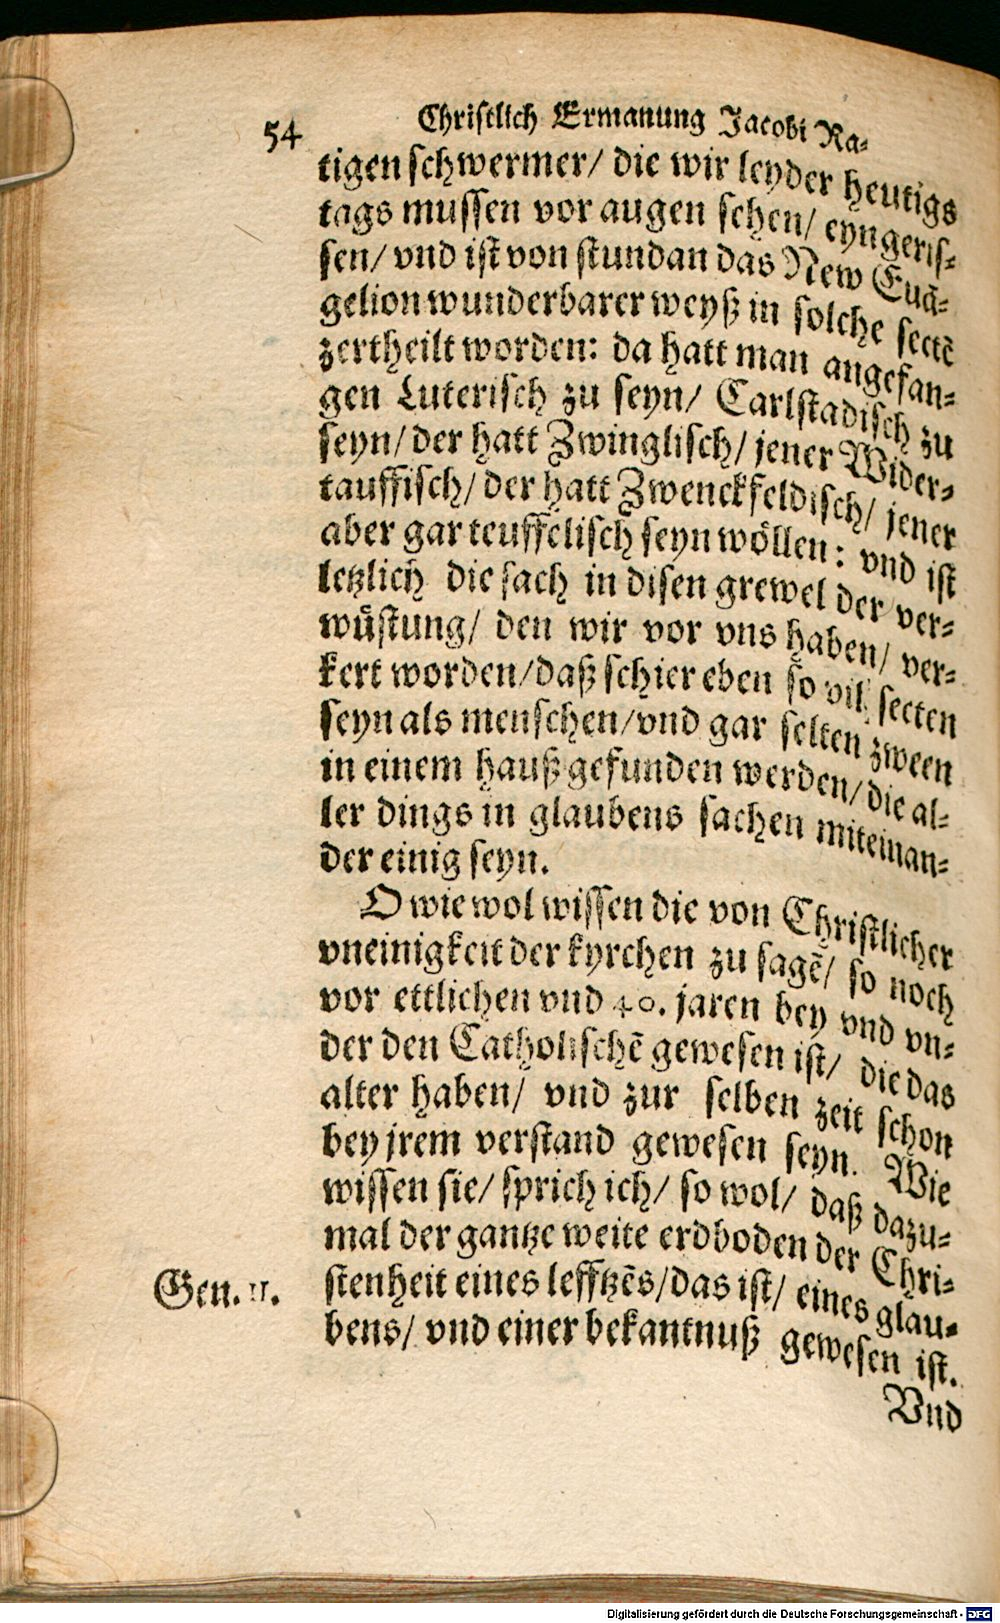 54 Christlich Ermanung Jacobi Ra-
tigen schwermer/ die wir leyder heutigs
tags mussen vor augen sehen/ eyngeris-
sen/ vnd ist von stundan das New Euā-
gelion wunderbarer weyß in solche sectē
zertheilt worden: da hatt man angefan-
gen Luterisch zu seyn/ Carlstadisch zu
seyn/ der hatt Zwinglisch/ jener Wider-
tauffisch/ der hatt Zwenckfeldisch/ jener
aber gar teuffelisch seyn wöllen: vnd ist
letzlich die sach in disen grewel der ver-
wüstung/ den wir vor vns haben/ ver-
kert worden/ daß schier eben so vil secten
seyn als menschen/ vnd gar selten zween
in einem hauß gefunden werden/ die al-
ler dings in glaubens sachen miteinan-
der einig seyn.
O wie wol wissen die von Christlicher
vneinigkeit der kyrchen zu sagē/ so noch
vor ettlichen vnd 40. jaren bey vnd vn-
der den Catholischē gewesen ist/ die das
alter haben/ vnd zur selben zeit schon
bey jrem verstand gewesen seyn. Wie
wissen sie/ sprich ich/ so wol/ daß dazu-
mal der gantze weite erdboden der Chri-
Gen. 11. stenheit eines lefftzēs/ das ist/ eines glau-
bens/ vnd einer bekantnuß gewesen ist.
Vnd
Digitalisierung gefördert durch die Deutsche Forschungsgemeinschaft - DFG